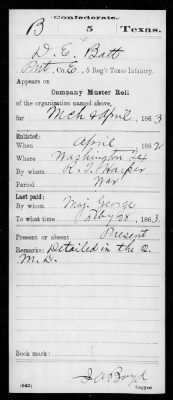 Confederate.
B 5 Texas.
D. E. Batt
Pvt, Co. E, 5 Reg't Texas Infantry.
Appears on
Company Muster Roll
of the organization named above,
for Mch & April, 1863
Enlisted:
When April 1862
Where Washington
By whom R. T. Harper
Period War
Last paid:
By whom Maj. George
To what time Feby 28, 1863.
Present or absent Present
Remarks: Detailed in the Q.
M. D.
Book mark:
(642)
J A Boyd
Copyist.